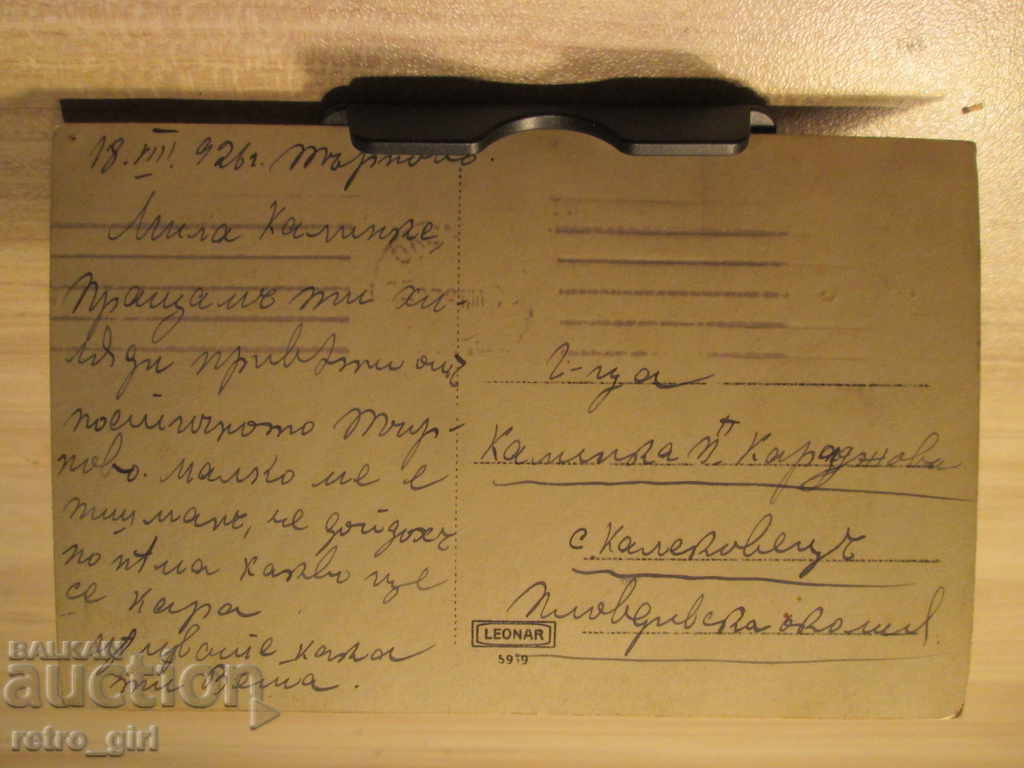 18.VIII. 926г. Търново.
Мила Калинке
Пращамъ ти хи-
ляди привѣти отъ
поетичното Тър-
ново. Малко ме е
яд, че дойдохъ
но нѣма какво ще
се кара
Цѣлува те кака
ти Веша.
Г-ца
Калинка П. Караджова
с. Калековецъ
Пловдивска околия.
LEONAR
5919
BALKAN
auction
retro_girl